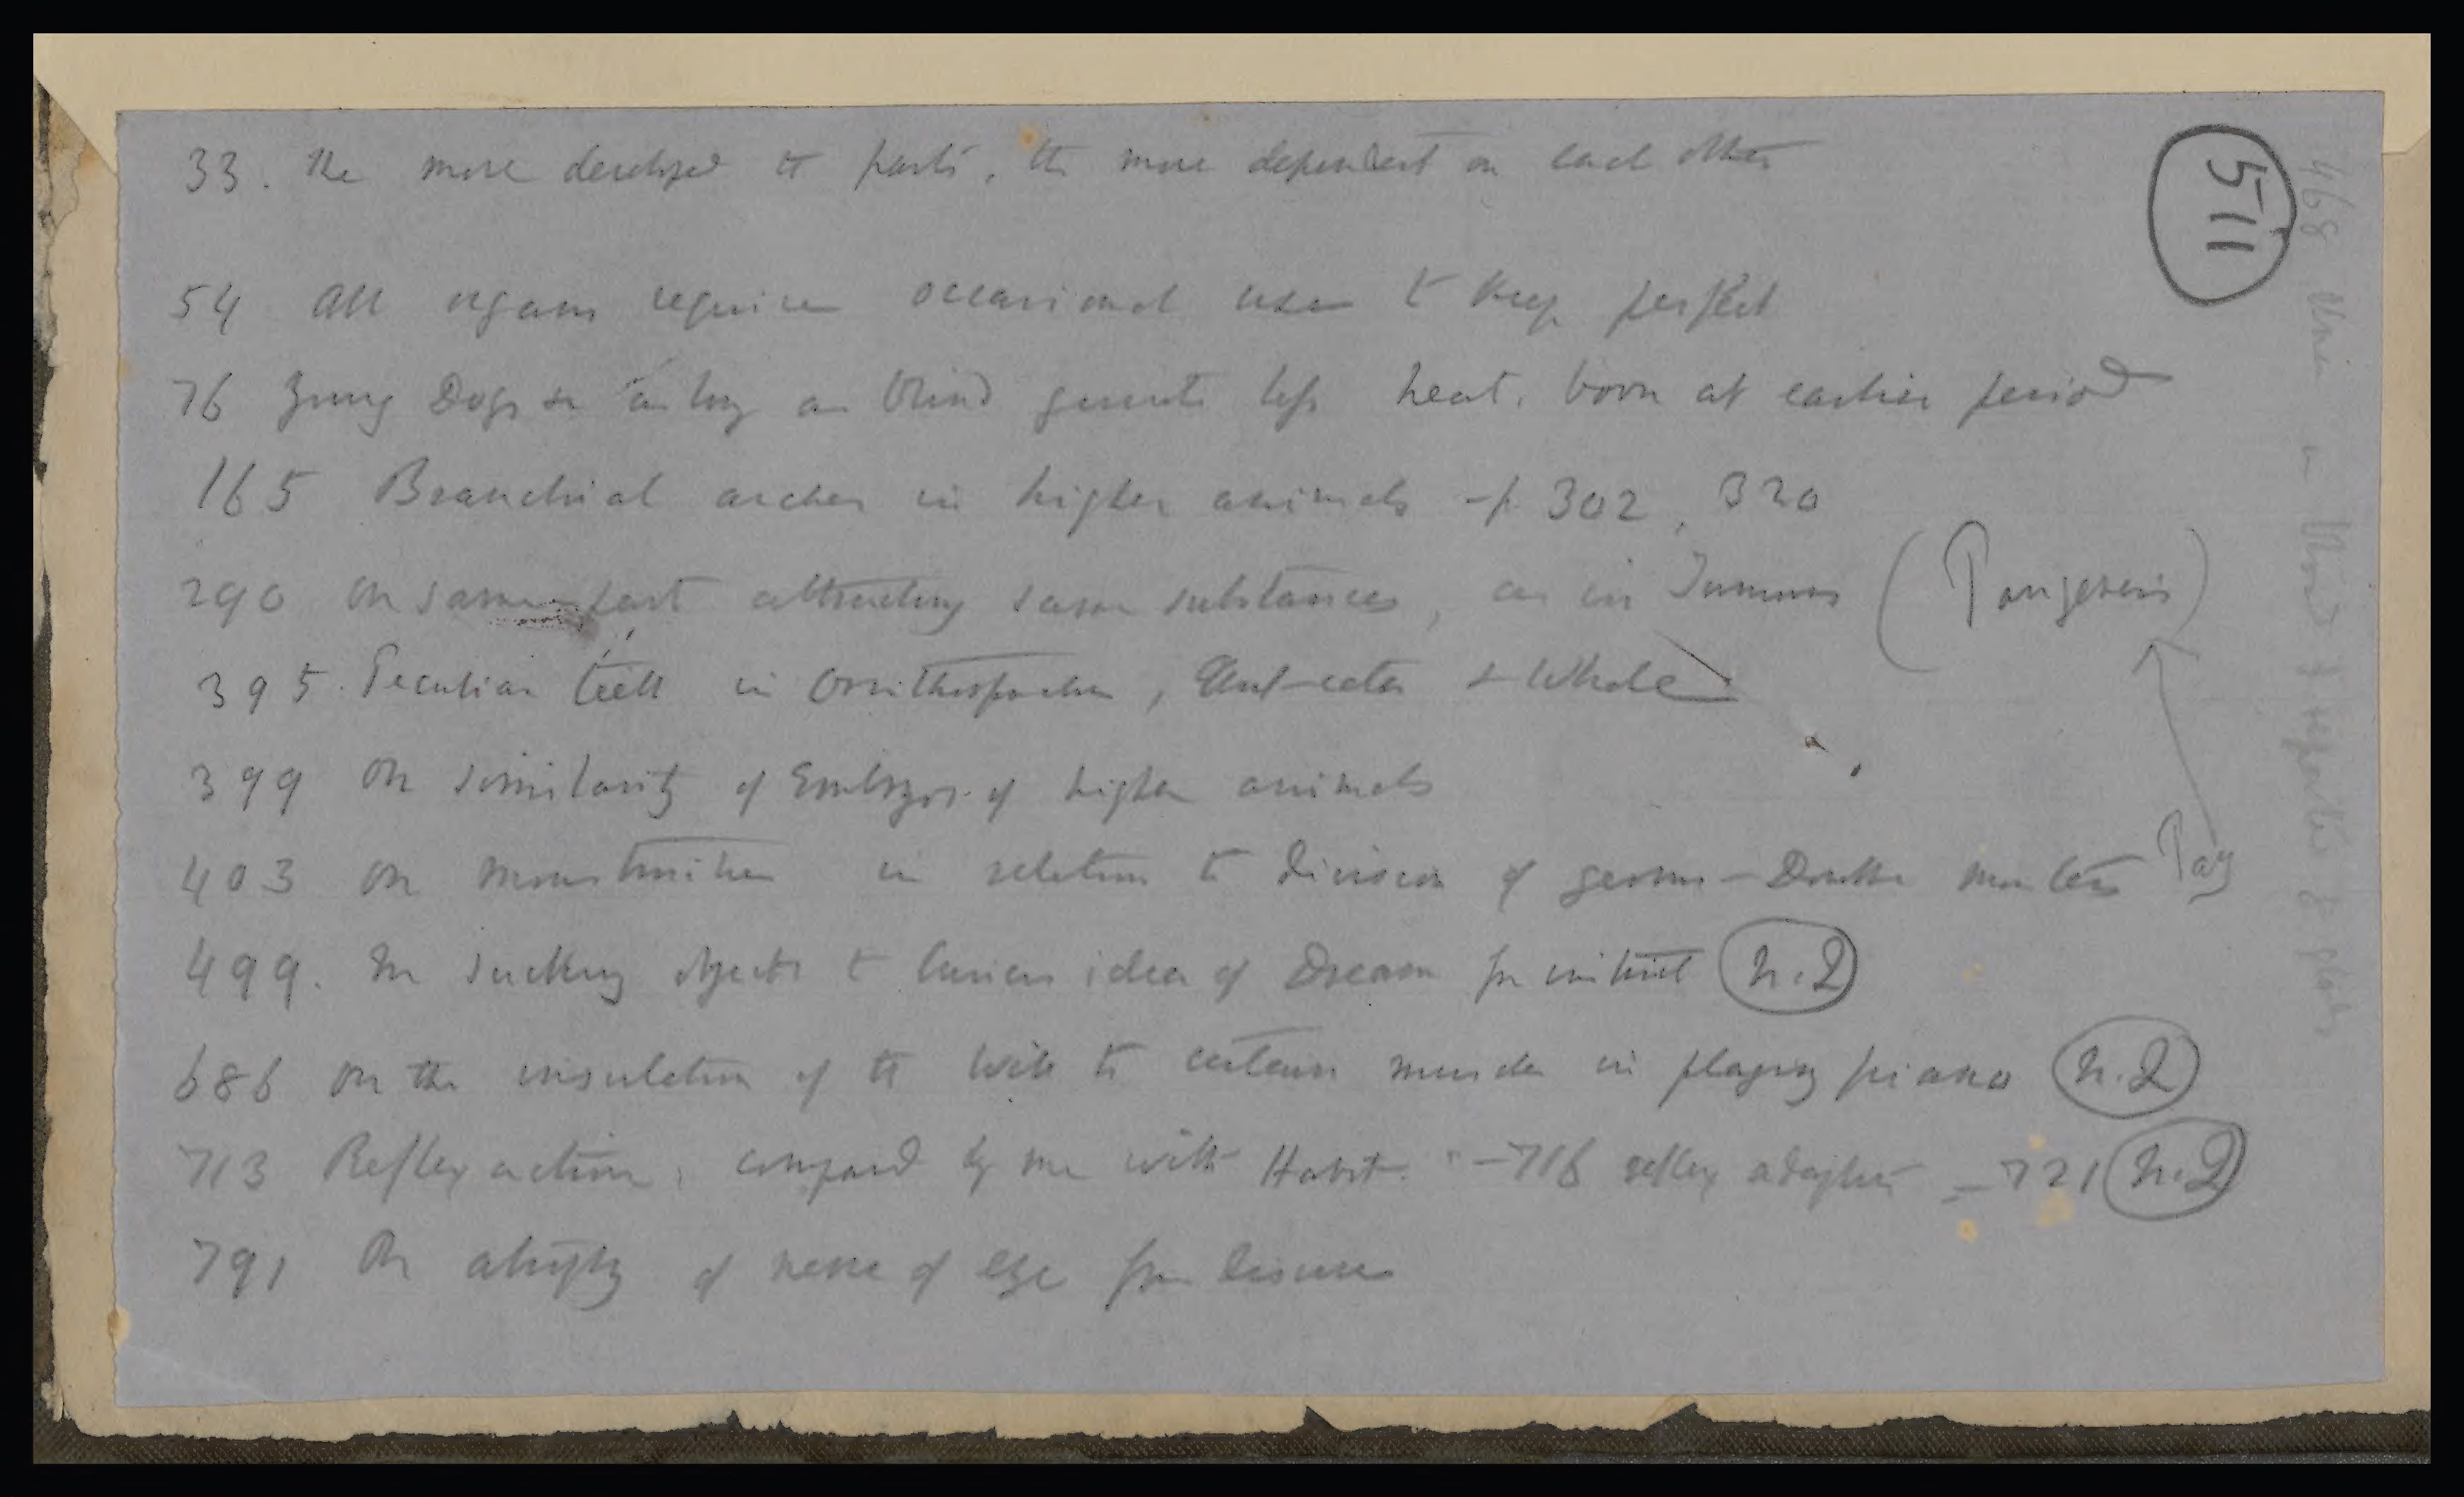 33. The more developed the parts, the more dependent on each other
511
54 All organs require occasional use to keep perfect
76 Young Dogs as long as blind generate less heat, born at earlier period
165 Branchial arches in higher animals - p. 302, 320
290 On same part attracting same substances, as in Tumours (Pangenesis)
395. Peculiar teeth in Ornithorhynchus, Ant-eater & Whale
399 On similarity of Embryos of higher animals
403 On monstrosities in relation to division of germs - Double monsters Pang
499. On sucking objects to Cuvier's idea of Dream for instinct N.Q
686 On the insulation of the will to certain muscles in playing piano N.Q
713 Reflex action, compared by me with Habit. - 716 reflex adapted - 721 N.Q
791 On atrophy of nerve of eye from disuse
468 in blood &